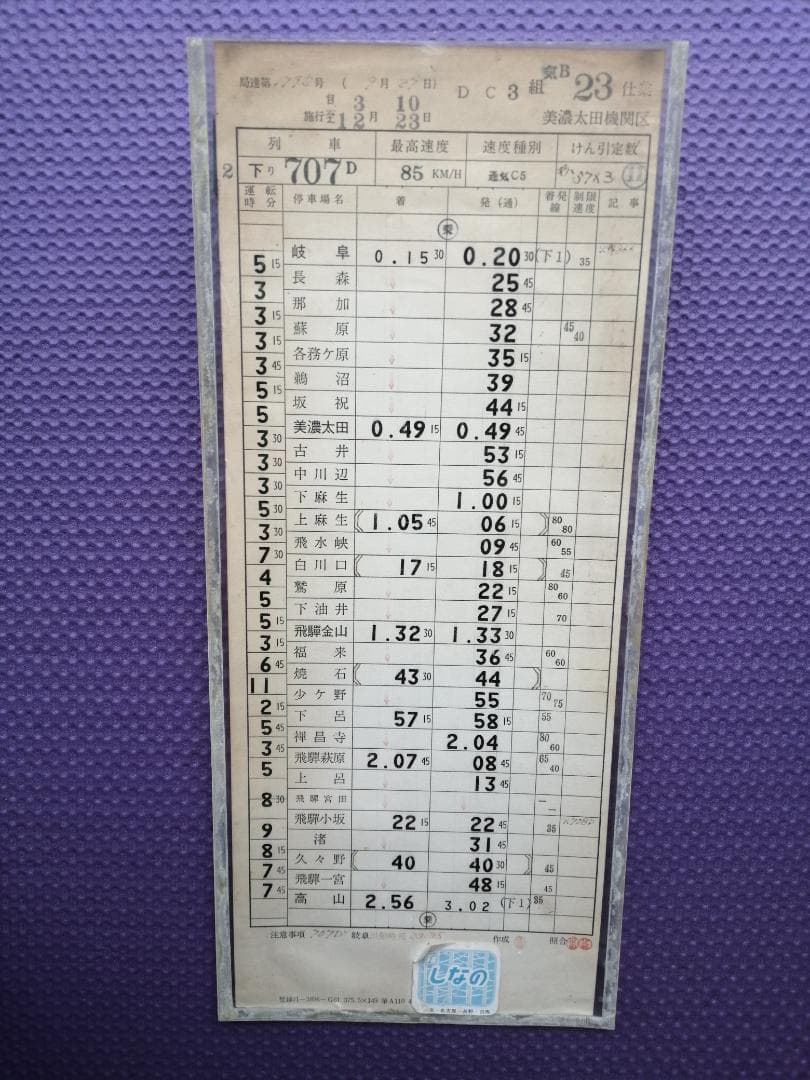 局達第 号 ( 9月27日)
DC3組 気B 23 仕業
自 3 10
施行至12月23日 美濃太田機関区
列車 最高速度 速度種別 けん引定数
2 下り 707D 85 KM/H 通気C5 37×3 11
運転時分 停車場名 着 発(通) 着発線 制限速度 記事
乗
岐阜 0.15 30 0.20 30 (下1) 35
5 15
長森 25 45
3
那加 28 45
3 15
蘇原 32 45 40
3 15
各務ケ原 35 15
3 45
鵜沼 39
5 15
坂祝 44 15
5
美濃太田 0.49 15 0.49 45
3 30
古井 53 15
3 30
中川辺 56 45
3 30
下麻生 1.00 15
5 30
上麻生 1.05 45 06 15 80 80
3 30
飛水峡 09 45 60 55
7 30
白川口 17 15 18 15 45
4
鷲原 22 15 80 60
5
下油井 27 15 70
5 15
飛騨金山 1.32 30 1.33 30
3 15
福来 36 45 60 60
6 45
焼石 43 30 44
11
少ケ野 55 70 75
2 15
下呂 57 15 58 15 55
5 45
禅昌寺 2.04 80 60
3 45
飛騨萩原 2.07 45 08 45 65 40
5
上呂 13 45
8 30
飛騨宮田
飛騨小坂 22 15 22 45 35
9
渚 31 45
8 15
久々野 40 40 30 45
7 45
飛騨一宮 48 15 45
7 45
高山 2.56 3.02 (下1) 35
乗
注意事項 707D 岐阜 作成 照合
しなの